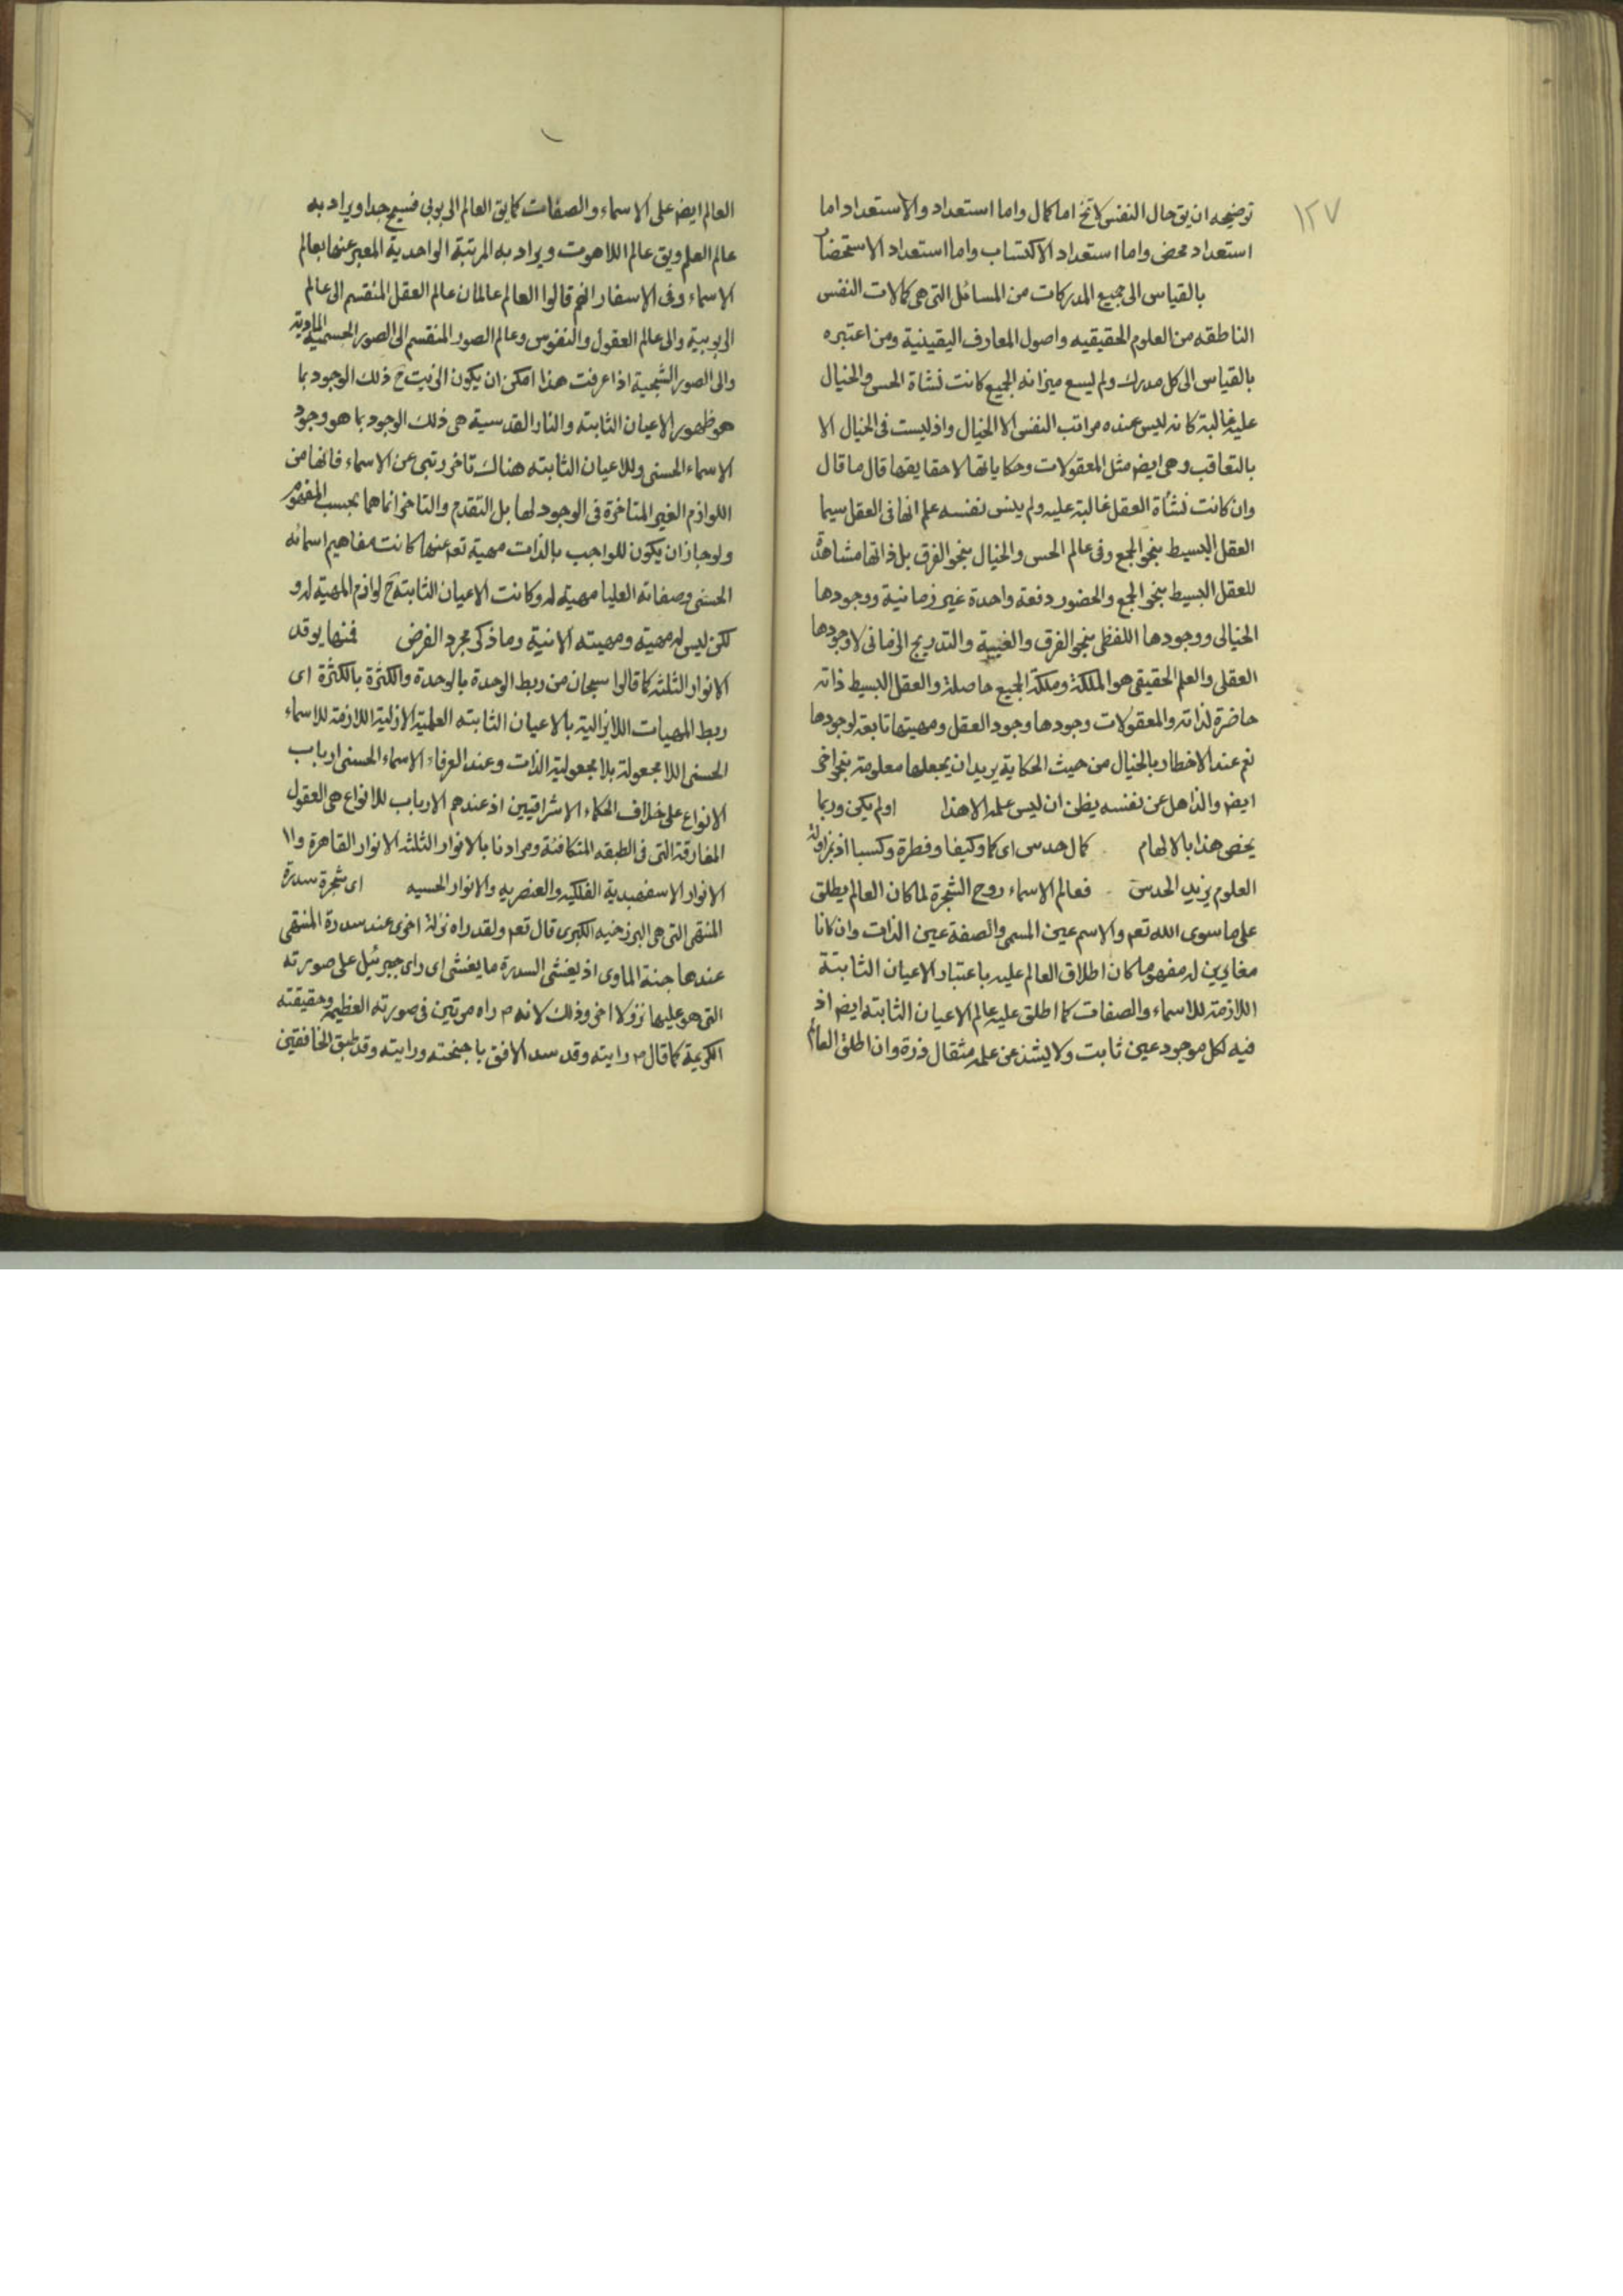 ١٢٧
توضیحه ان یق حال النفس لا تخ اما کمال واما استعداد والاستعداد اما
استعداد محض واما استعداد الاکتساب واما استعداد الاستحضار
بالقیاس الی جمیع المدرکات من المسائل التی هی کمالات النفس
الناطقه من العلوم الحقیقیه واصول المعارف الیقینیة ومن اعتبره
بالقیاس الی کل مدرک ولم یسع میزانه الجمیع کانت نشاة الحس والخیال
علیه غالبة کانه لیس عنده مراتب النفس الا الخیال واذ لیست فی الخیال الا
بالتعاقب وهی ایضا مثل المعقولات وحکایاتها لا حقایقها قال ما قال
وان کانت نشأة العقل غالبة علیه ولم ینس نفسه علم انها فی العقل سیما
العقل البسیط بنحو الجمع وفی عالم الحس والخیال بنحو الفرق بل ذاتها مشاهدة
للعقل البسیط بنحو الجمع والحضور دفعة واحدة غیر زمانیة ووجودها
الخیالی ووجودها اللفظی بنحو الفرق والغیبة والتدریج الزمانی لا وجودها
العقلی والعلم الحقیقی هو الملکة وملکة الجمیع حاصلة والعقل البسیط ذاته
حاضرة لذاته والمعقولات وجودها وجود العقل ومهیتها تابعة لوجودها
نعم عند الاخطار بالخیال من حیث الحکایة یرید ان یجعلها معلومة بنحو اخر
ایضا والذاهل عن نفسه یظن ان لیس علمه الا هذا اولم یکن وربما
یخص هذا بالالهام کمال حدس ای کما وکیفا وفطرة وکسبا اذ بمزاولة
العلوم یزید الحدس فعالم الاسماء روح الشجرة لما کان العالم یطلق
علی ما سوی الله تعم والاسم عین المسمی والصفة عین الذات وان کانا
مغایرین له مفهوما کان اطلاق العالم علیه باعتبار الاعیان الثابتة
اللازمة للاسماء والصفات کما اطلق علیه عالم الاعیان الثابته ایضا اذ
فیه لکل موجود عین ثابت ولا یشذ عن علمه مثقال ذرة وان اطلق العالم
العالم ایضا علی الاسماء والصفات کما یق العالم الربوبی فسیح جدا ویراد به
عالم العلم ویق عالم اللاهوت ویراد به المرتبة الواحدیة المعبر عنها بعالم
الاسماء وفی الاسفار انهم قالوا العالم عالمان عالم العقل المنقسم الی عالم
الربوبیة والی عالم العقول والنفوس وعالم الصور المنقسم الی الصور الجسمیة المادیة
والی الصور الشبحیة اذا عرفت هذا امکن ان یکون الزیت ح ذلک الوجود بما
هو ظهور الاعیان الثابته والنار القدسیة هی ذلک الوجود بما هو وجود
الاسماء الحسنی وللاعیان الثابته هناک تاخر رتبی عن الاسماء فانها من
اللوازم الغیر المتاخرة فی الوجود لها بل التقدم والتاخر انما هما بحسب المفهوم
ولو جاز ان یکون للواجب بالذات مهیة تعم عنها کانت مفاهیم اسمائه
الحسنی وصفاته العلیا مهیة له وکانت الاعیان الثابتة ح لوازم المهیة له و
لکن لیس له مهیة ومهیته الانیة وما ذکر مجرد الفرض فمنها یوقد
الانوار الثلثه کما قالوا سبحان من ربط الوحدة بالوحدة والکثرة بالکثرة ای
ربط المهیات اللایزالیة بالاعیان الثابته العلمیة الازلیة اللازمة للاسماء
الحسنی اللامجعولة بلا مجعولیة الذات وعند العرفاء الاسماء الحسنی ارباب
الانواع علی خلاف الحکماء الاشراقیین اذ عندهم الارباب للانواع هی العقول
المفارقة التی فی الطبقه المتکافئة ومرادنا بالانوار الثلثه الانوار القاهرة والا
الانوار الاسفهبدیة الفلکیه والعنصریه والانوار الحسیه ای شجرة سدرة
المنتهی التی هی البرزخیه الکبری قال تعم ولقد راه نزلة اخری عند سدرة المنتهی
عندها جنة الماوی اذ یغشی السدرة ما یغشی ای رای جبرئیل علی صورته
التی هو علیها نزولا اخر وذلک لانه م راه مرتین فی صورته العظیمة وحقیقته
الکریمة کما قال م رایته وقد سد الافق باجنحته ورایته وقد طبق الخافقین